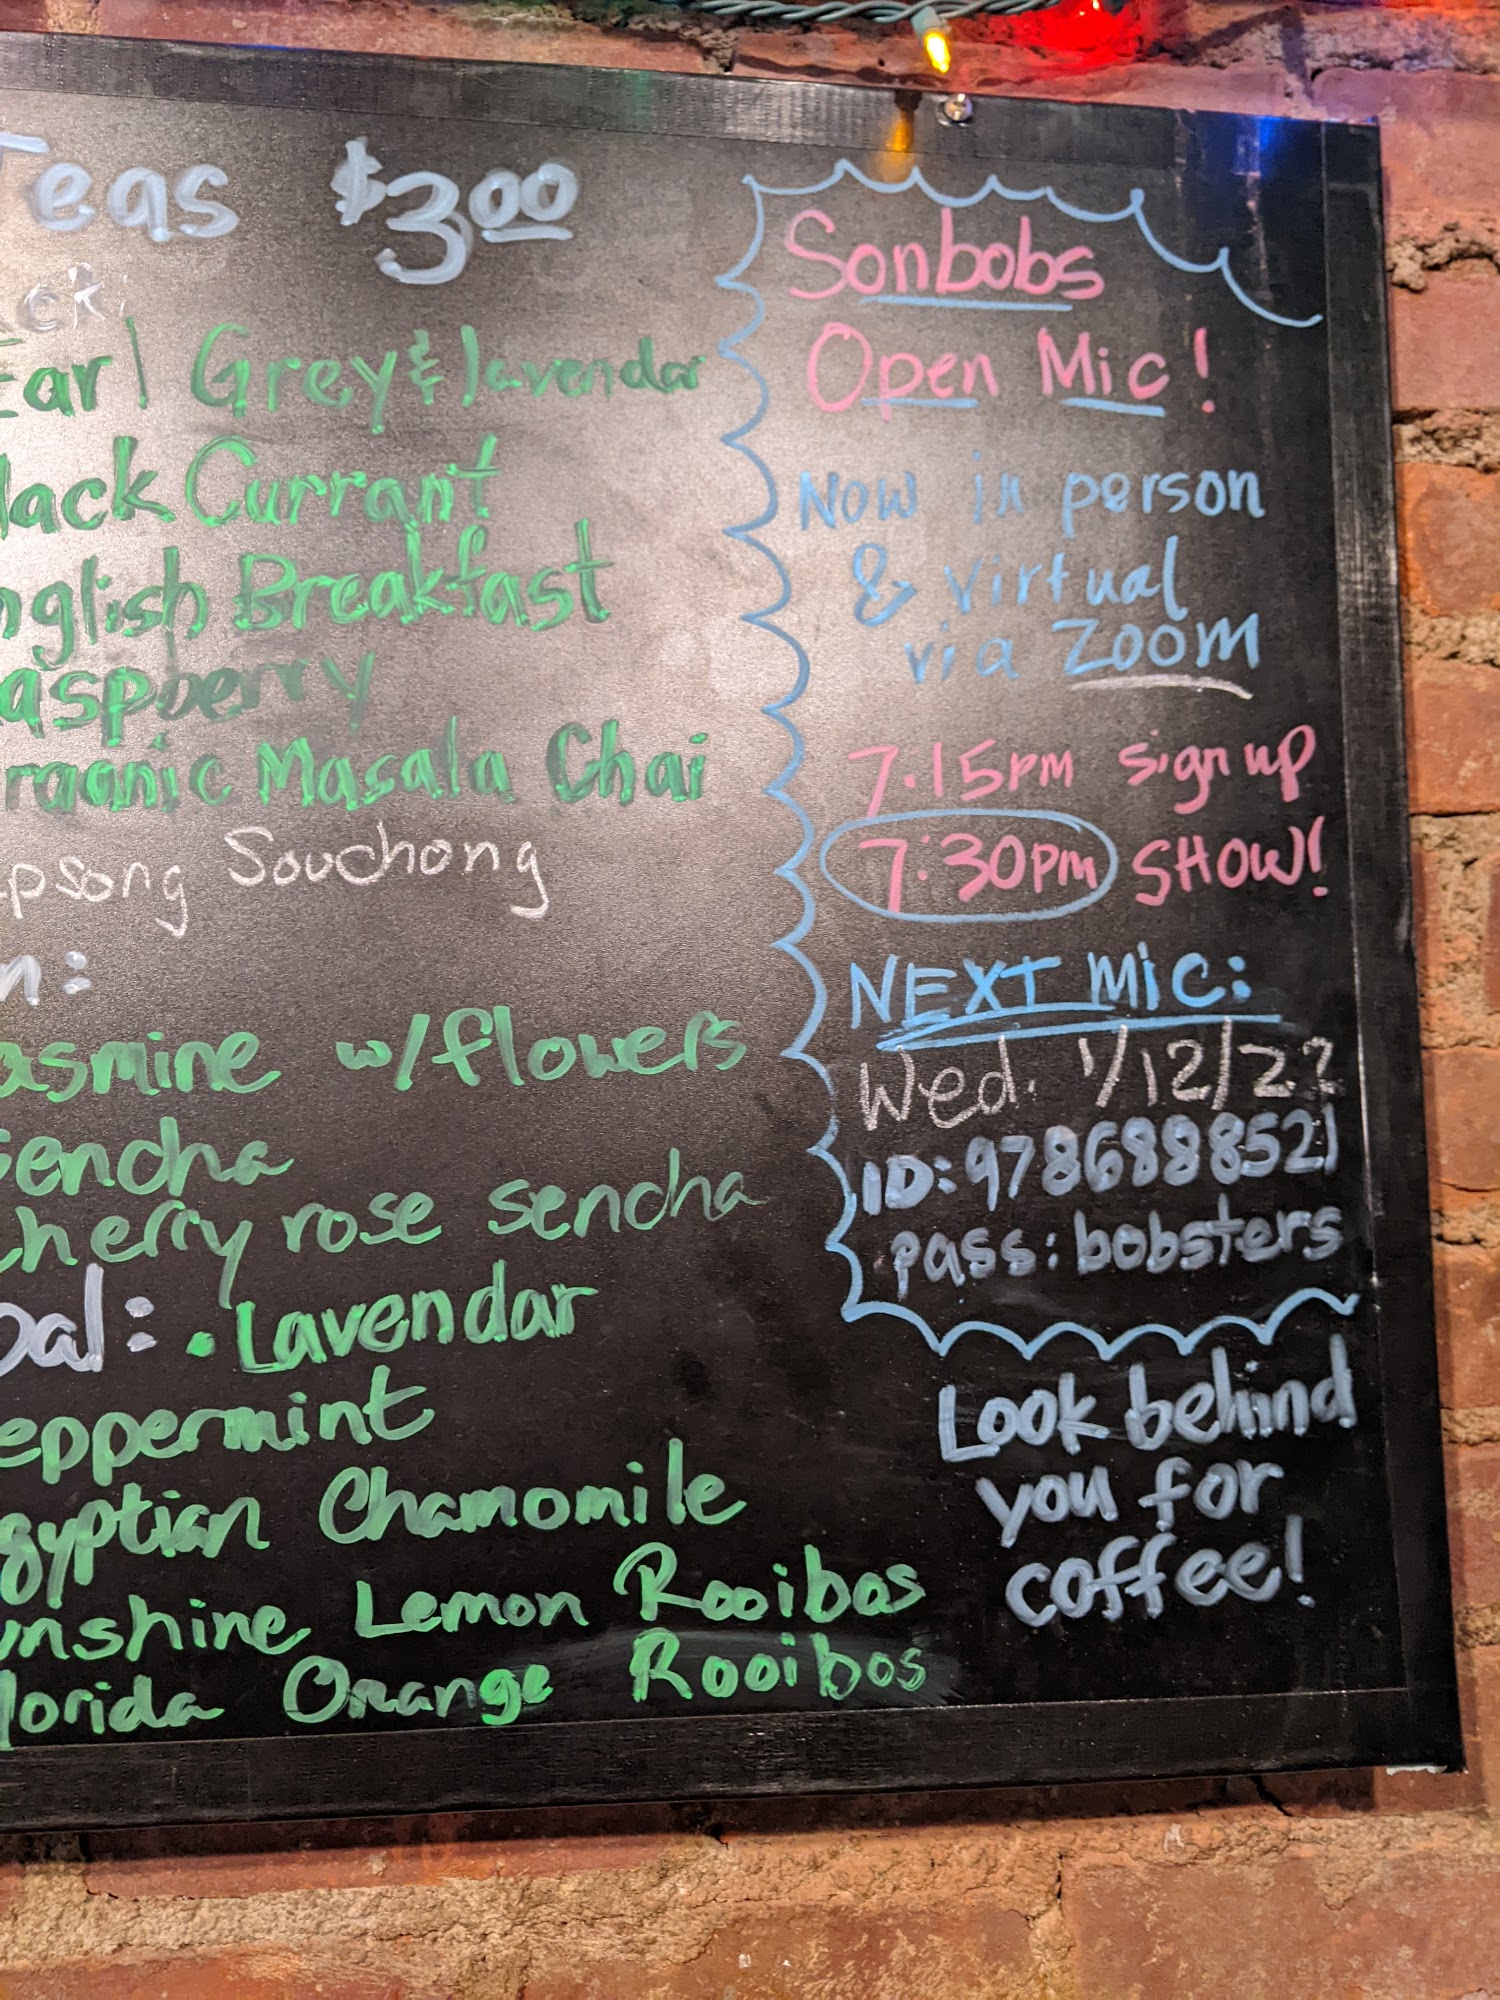 Teas $3.00
ck:
Earl Grey & lavendar
lack Currant
nglish Breakfast
aspberry
rganic Masala Chai
apsong Souchong
n:
asmine w/flowers
Sencha
Cherry rose sencha
bal: • Lavendar
eppermint
gyptian Chamomile
unshine Lemon Rooibos
lorida Orange Rooibos
Sonbobs
Open Mic!
Now in person
& virtual
via Zoom
7:15pm sign up
7:30pm SHOW!
NEXT MIC:
Wed. 1/12/22
ID: 9786888521
pass: bobsters
Look behind
you for
coffee!